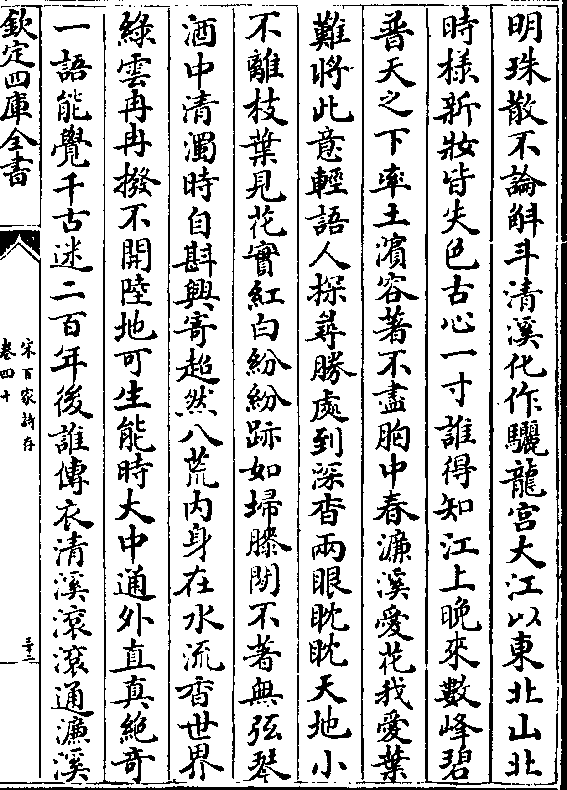 明珠散不論斛斗清溪化作驪龍宮大江以東北山北
時様新妝皆失色古心一寸誰得知江上晚來數峰碧
普天之下率土濱容著不盡胸中春濂溪愛花我愛葉
難將此意輕語人探尋勝處到深杳兩眼眈眈天地小
不離枝葉見花實紅白紛紛跡如埽滕閣不著無弦琴
酒中清濁時自斟興寄超然八荒內身在水流香世界
綠雲冉冉撥不開陸地可生能時大中通外直真絕奇
一語能覺千古迷二百年後誰傳衣清溪滾滾通濂溪
欽定四庫全書
宋百家詩存
卷四十
三十二